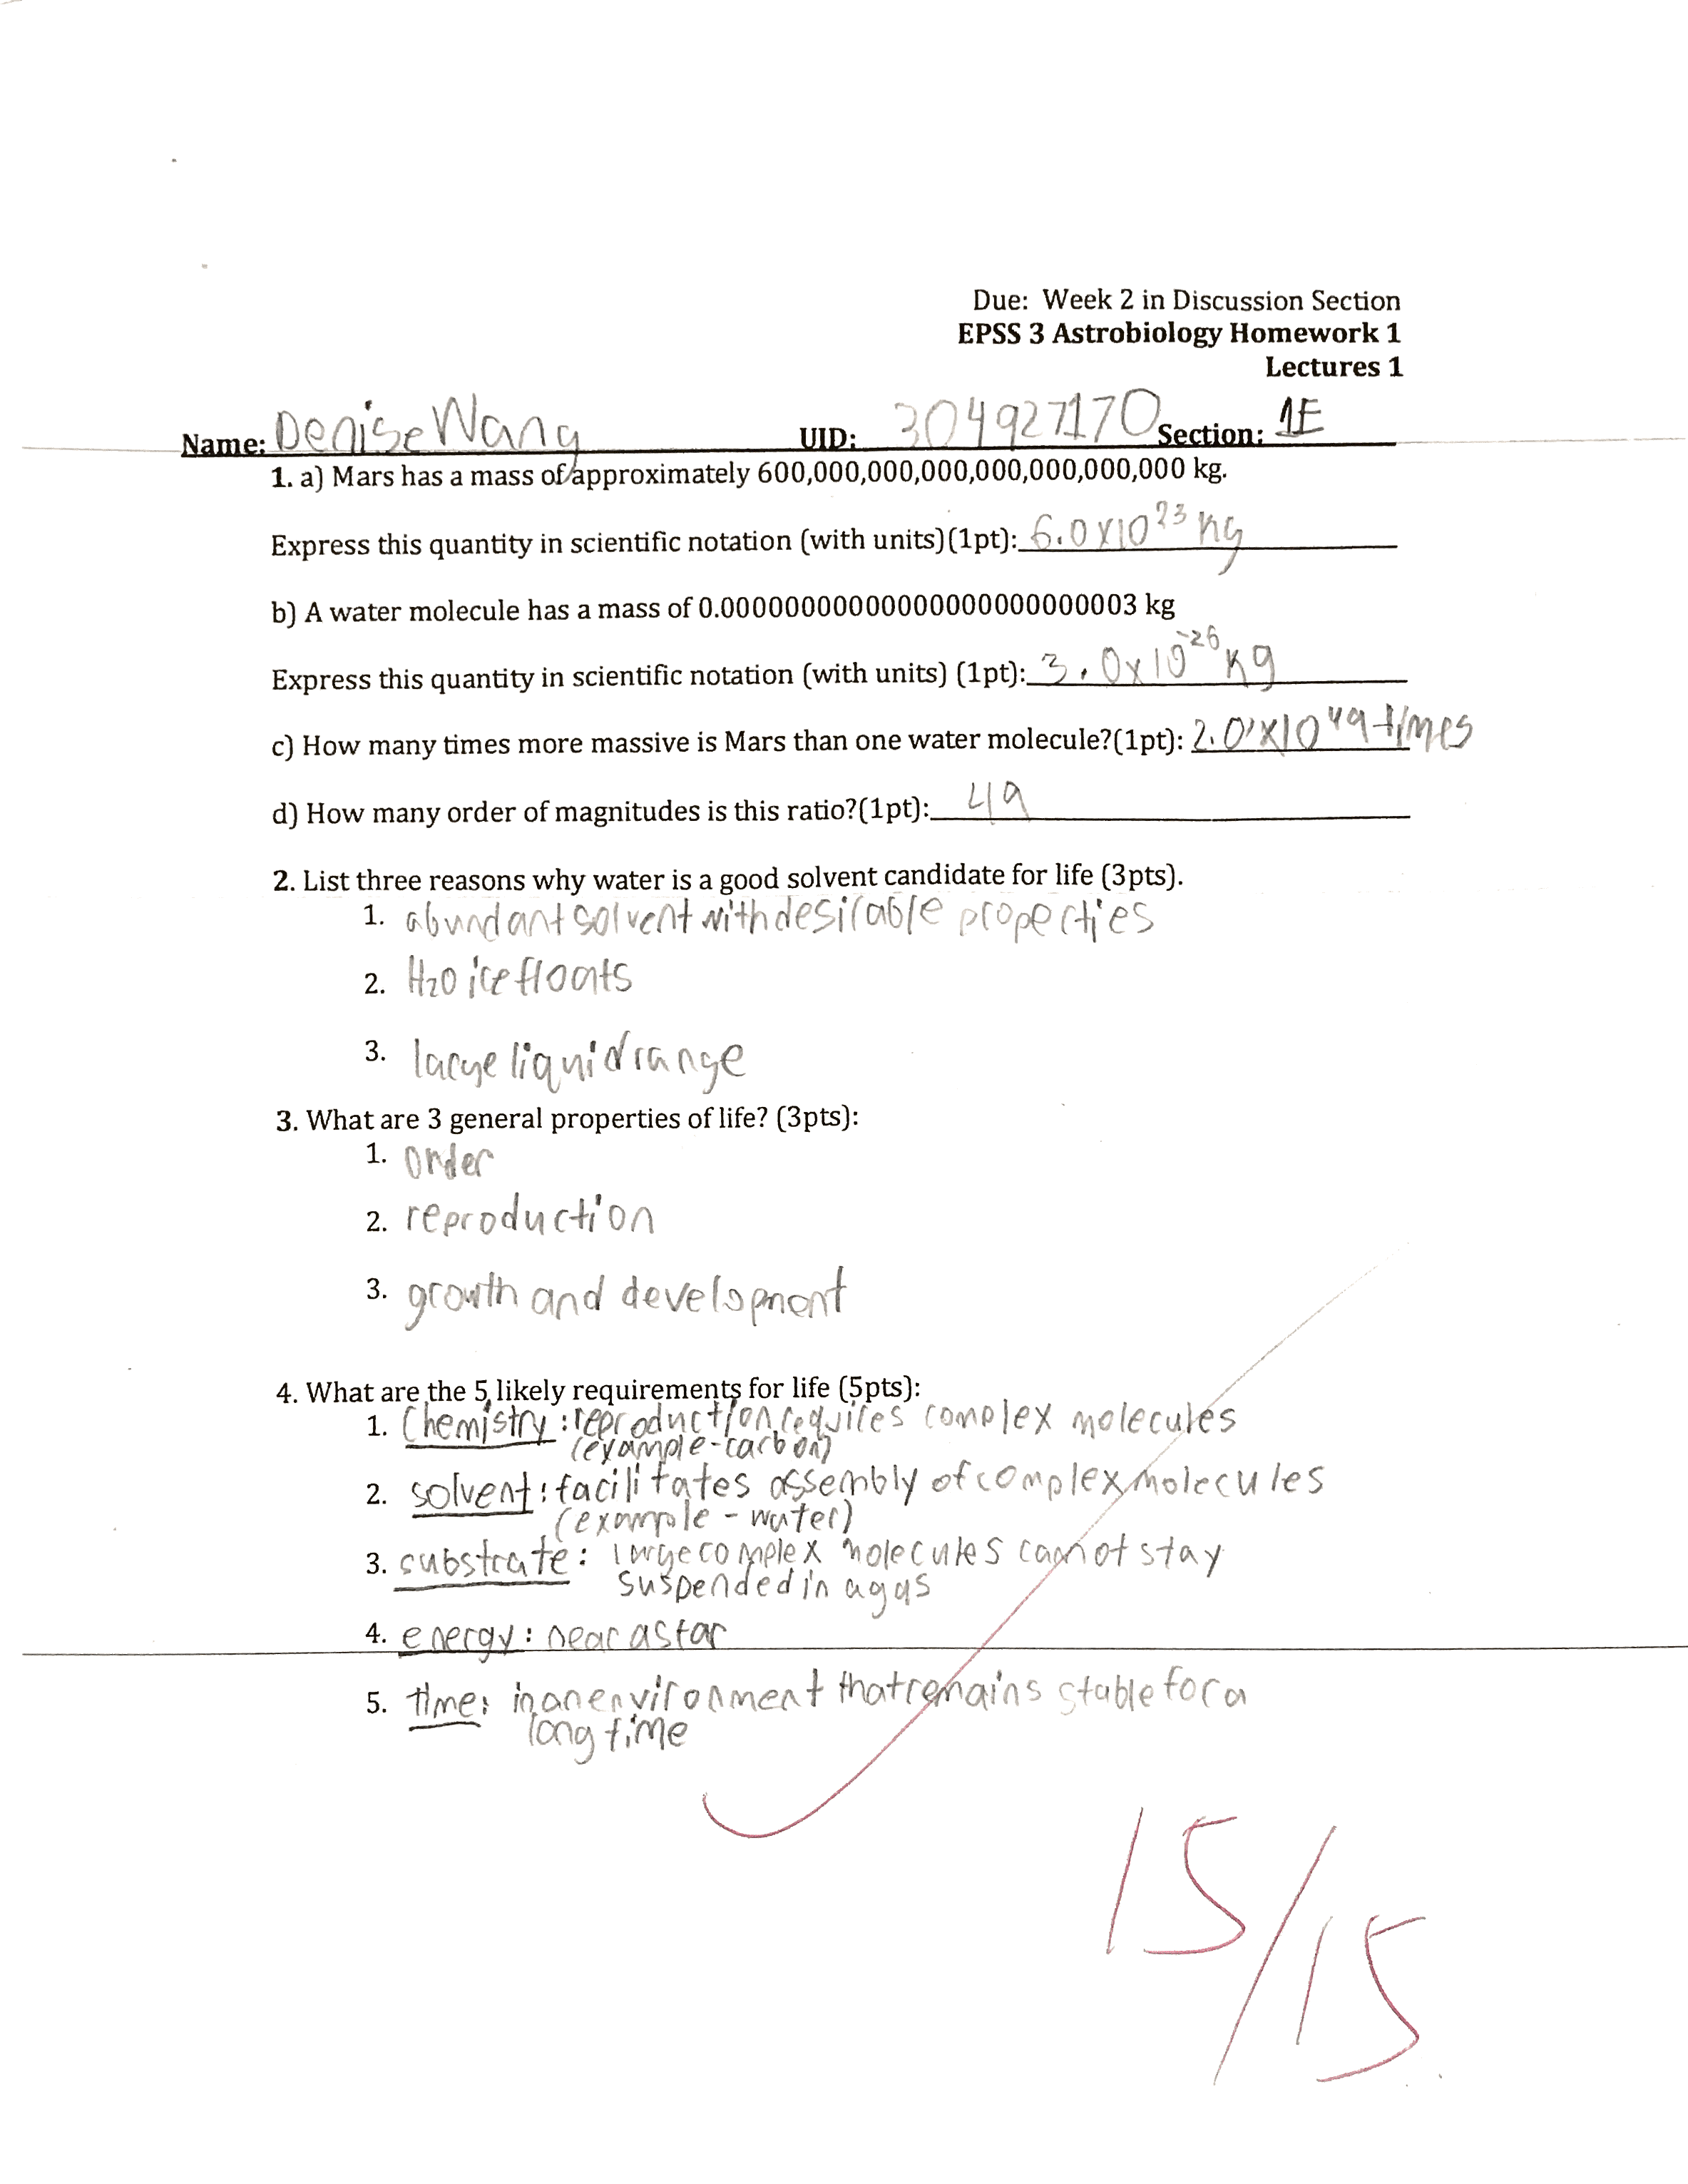 Due: Week 2 in Discussion Section
EPSS 3 Astrobiology Homework 1
Lectures 1
Name: Denise Wang UID: 304927170 Section: 1E
1. a) Mars has a mass of approximately 600,000,000,000,000,000,000,000 kg.
Express this quantity in scientific notation (with units)(1pt): 6.0x10²³ kg
b) A water molecule has a mass of 0.00000000000000000000000003 kg
Express this quantity in scientific notation (with units) (1pt): 3.0x10⁻²⁶ kg
c) How many times more massive is Mars than one water molecule?(1pt): 2.0x10⁴⁹ times
d) How many order of magnitudes is this ratio?(1pt): 49
2. List three reasons why water is a good solvent candidate for life (3pts).
1. abundant solvent with desirable properties
2. H₂O ice floats
3. large liquid range
3. What are 3 general properties of life? (3pts):
1. order
2. reproduction
3. growth and development
4. What are the 5 likely requirements for life (5pts):
1. Chemistry: reproduction requires complex molecules
(example-carbon)
2. solvent: facilitates assembly of complex molecules
(example - water)
3. substrate: large complex molecules cannot stay
suspended in a gas
4. energy: near a star
5. time: in an environment that remains stable for a
long time
15/15